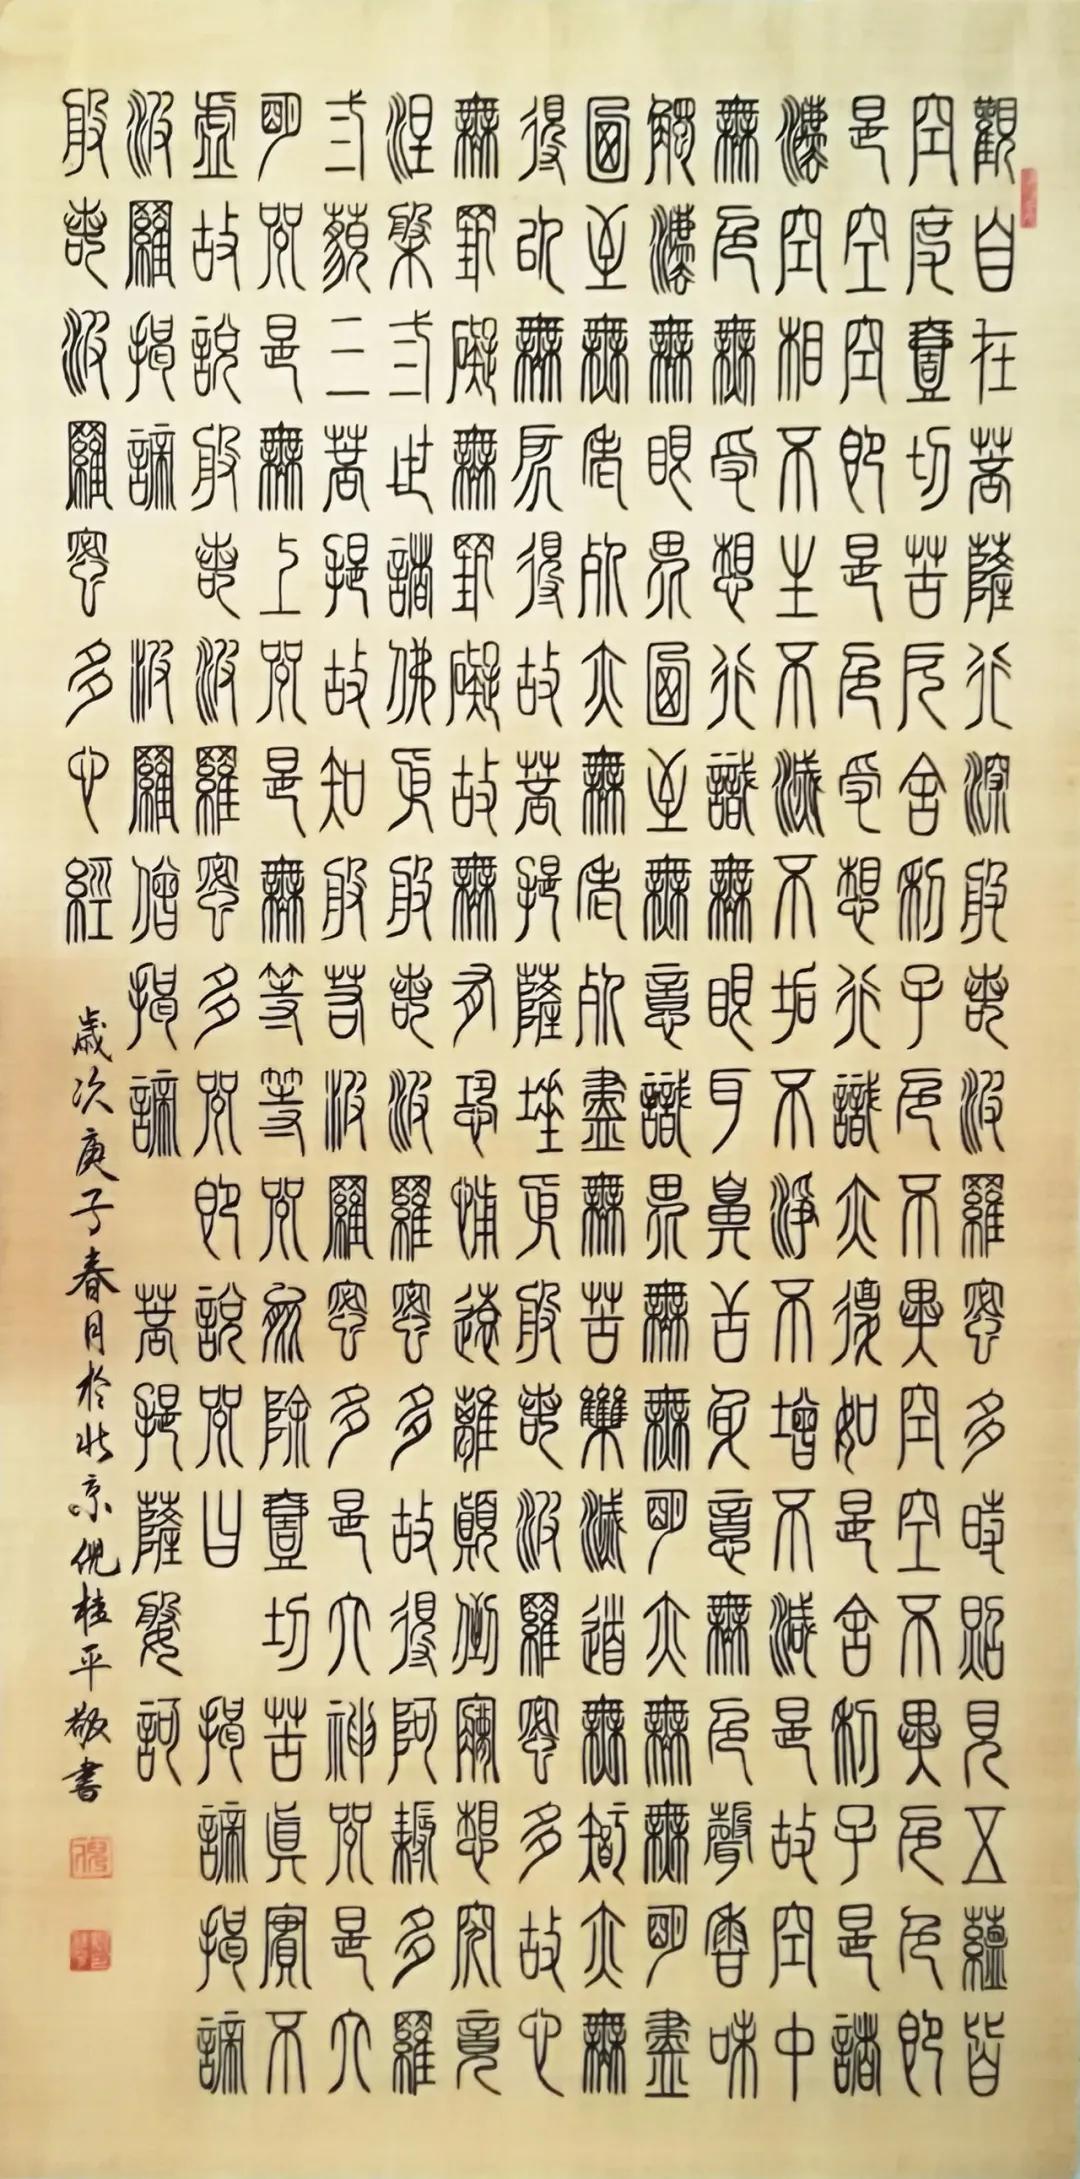 觀自在菩薩行深般若波羅蜜多時照見五蘊皆
空度壹切苦厄舍利子色不異空空不異色色即
是空空即是色受想行識亦復如是舍利子是諸
灋空相不生不滅不垢不淨不增不減是故空中
無色無受想行識無眼耳鼻舌身意無色聲香味
觸灋無眼界乃至無意識界無無明亦無無明盡
乃至無老死亦無老死盡無苦集滅道無智亦無
得以無所得故菩提薩埵依般若波羅蜜多故心
無罣礙無罣礙故無有恐怖遠離顛倒夢想究竟
涅槃弎世諸佛依般若波羅蜜多故得阿耨多羅
弎藐三菩提故知般若波羅蜜多是大神咒是大
明咒是無上咒是無等等咒能除壹切苦真實不
虛故說般若波羅蜜多咒即說咒曰 揭諦揭諦
波羅揭諦 波羅僧揭諦 菩提薩婆訶
般若波羅蜜多心經
歲次庚子春月於北京倪桂平敬書